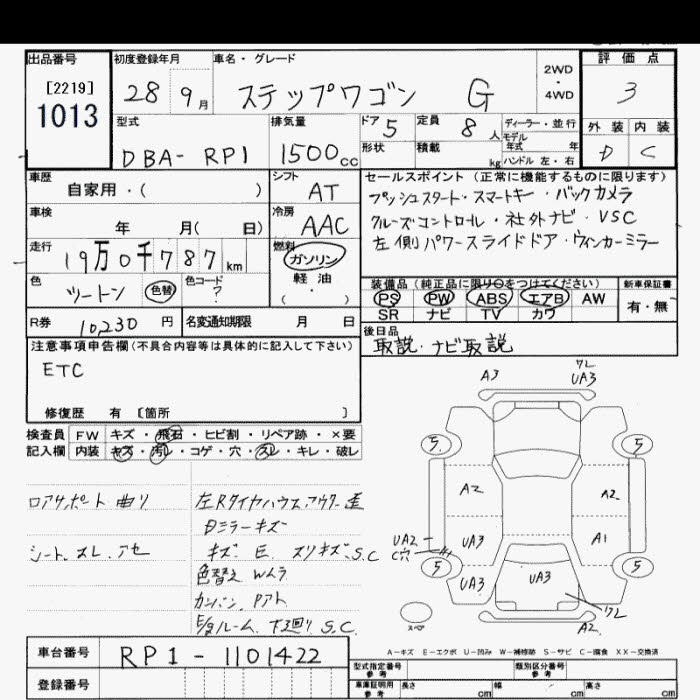 出品番号
[2219]
1013
初度登録年月
28 9月
車名・グレード
ステップワゴン G
2WD
・
4WD
評価点
3
型式
DBA- RP1
排気量
1500cc
ドア 5
定員 8人
ディーラー・並行
モデル
年式 年
形状
積載 kg
ハンドル 左・右
外装 内装
D C
車歴
自家用・( )
シフト
AT
車検
年 月( 日)
冷房
AAC
走行
19万0千787km
燃料
ガソリン
軽油
( ・ )
色
ツートン
色替
色コード
?
セールスポイント(正常に機能するものに限ります)
プッシュスタート・スマートキー・バックカメラ
クルーズコントロール・社外ナビ・VSC
左側パワースライドドア・ウィンカーミラー
装備品(純正品に限り○をつけてください)
PS PW ABS エアB AW
SR ナビ TV カワ
新車保証書
有・無
R券 10,230円
名変通知期限 月 日
後日品
取説・ナビ取説
注意事項申告欄(不具合内容等は具体的に記入して下さい)
ETC
修復歴 有 [箇所 ]
検査員
記入欄
FW キズ・飛石・ヒビ割・リペア跡・×要
内装 キズ・汚レ・コゲ・穴・スレ・キレ・破レ
ロアサポート曲り
シート、スレ、アセ
左Rタイヤハウスアウター歪
Dミラーキズ
キズ、E、スリキズ、S.C
色替え Wムラ
カンバン、Pアト
E/gルーム、下廻り S.C.
A3
ワレ
UA3
5
5
A2
A2
UA2
C穴
UA3
A1
5
5
UA3
UA3
ワレ
スペア
A2
A-キズ E-エクボ U-凹み W-補修跡 S-サビ C-腐食 XX-交換済
車台番号
RP1-1101422
登録番号
型式指定番号
参考
類別区分番号
参考
車庫証明用
参考
長さ cm
幅 cm
高さ cm